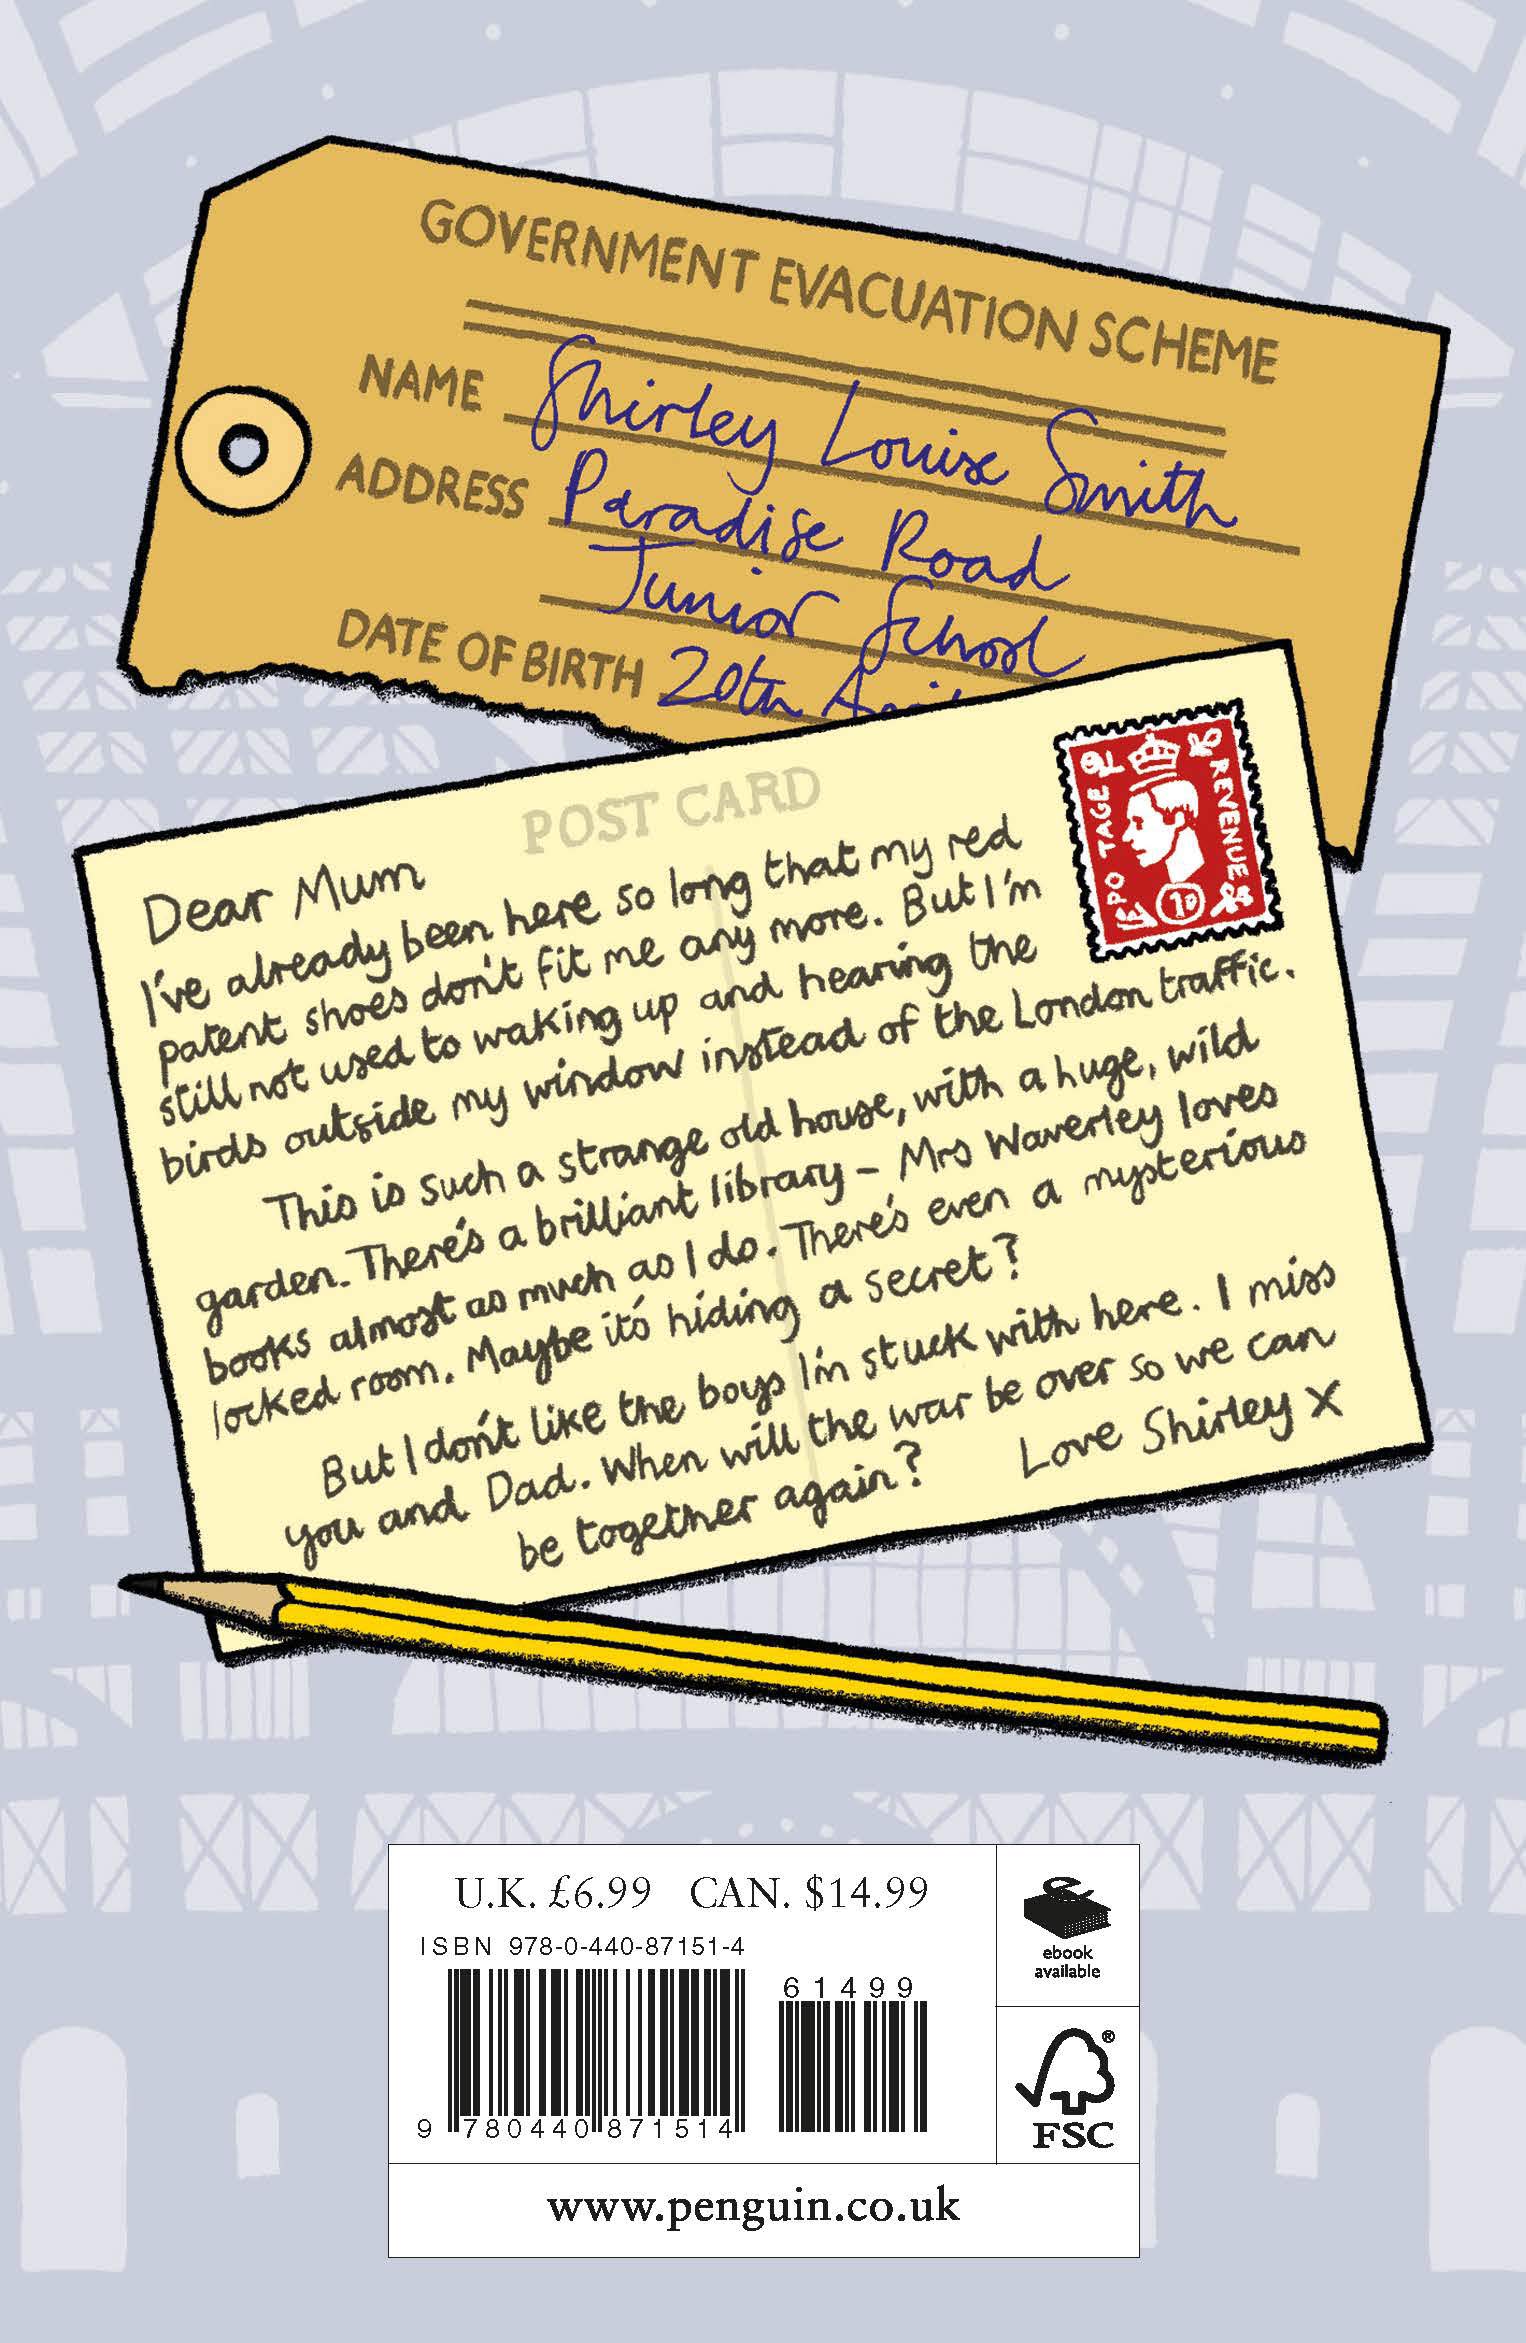 GOVERNMENT EVACUATION SCHEME
NAME Shirley Louise Smith
ADDRESS Paradise Road
Junior School
DATE OF BIRTH 20th
POST CARD
PO TAGE
REVENUE
1D
Dear Mum
I've already been here so long that my red
patent shoes don't fit me any more. But I'm
still not used to waking up and hearing the
birds outside my window instead of the London traffic.
This is such a strange old house, with a huge, wild
garden. There's a brilliant library – Mrs Waverley loves
books almost as much as I do. There's even a mysterious
locked room. Maybe it's hiding a secret?
But I don't like the boys I'm stuck with here. I miss
you and Dad. When will the war be over so we can
be together again?
Love Shirley X
U.K. £6.99 CAN. $14.99
ISBN 978-0-440-87151-4
61499
9 780440 871514
ebook
available
®
FSC
www.penguin.co.uk